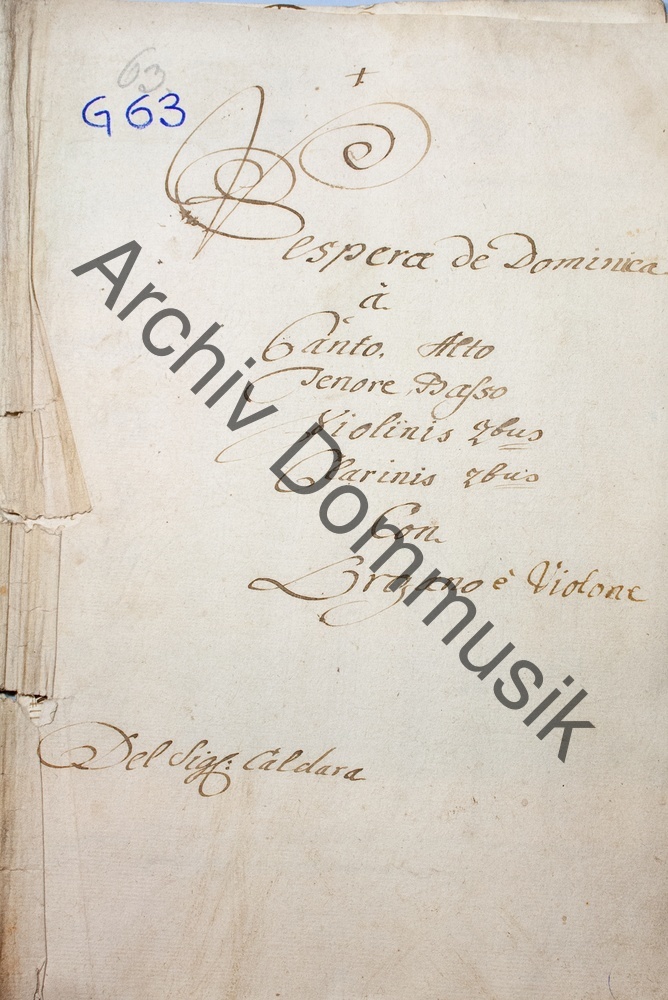 63.
G 63
+
Vespera de Dominica
à.
Canto. Alto
Tenore, Basso
Violinis 2bus
Clarinis 2bus
Con.
Organo è Violone
Del Sigl: Caldara
Archiv Dommusik